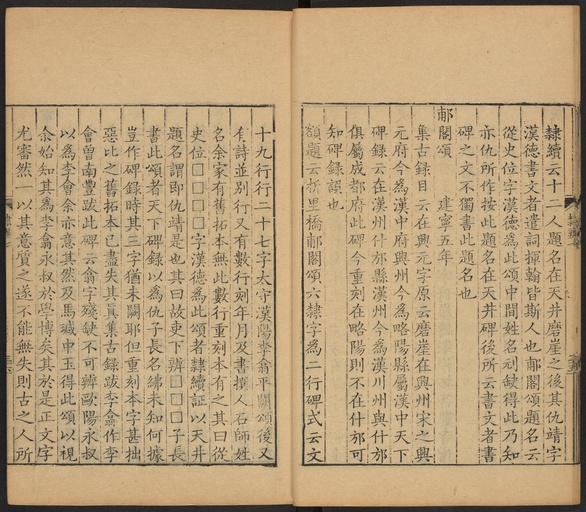 隸續云十二人題名在天井磨崖之後其仇靖字
漢德書文者遣詞揮翰皆斯人也郙閣頌題名云
從史位字漢德為此頌中間姓名刓缺得此乃知
亦仇所作按此題名在天井碑後所云書文者書
碑之文不獨書此題名也
郙閣頌 建寧五年
集古錄目云在興元字原云磨崖在興州宋之興
元府今為漢中府興州今為略陽縣屬漢中天下
碑錄云在漢州什邡縣漢州今為漢川州與什邡
俱屬成都府此碑今重刻在略陽則不在什邡可
知碑錄誤也
額題云析里橋郙闇頌六隸字為二行碑式云文
十九行行二十七字太守漢陽李翕平闕頌後又
有詩並別行又有數行刻年月及書撰人石師姓
名余家有舊拓本無此數行重刻本有之其曰從
史位□□□□字漢德為此頌者隸續証以天井
題名謂即仇靖是也其曰故吏下辨□□□子長
書此頌者天下碑錄以為仇子長名紼未知何據
豈作碑錄時其三字猶未闕耶但重刻本字甚拙
惡比之舊拓本已盡失其真集古錄跋李翕作李
會曾南豐跋此碑云翕字殘缺不可辨歐陽永叔
以為李會余亦意其然及馬瑊中玉得此頌以視
余始知其為李翕永叔於學博矣其於是正文字
尤審然一以其意質之遂不能無失則古之人所